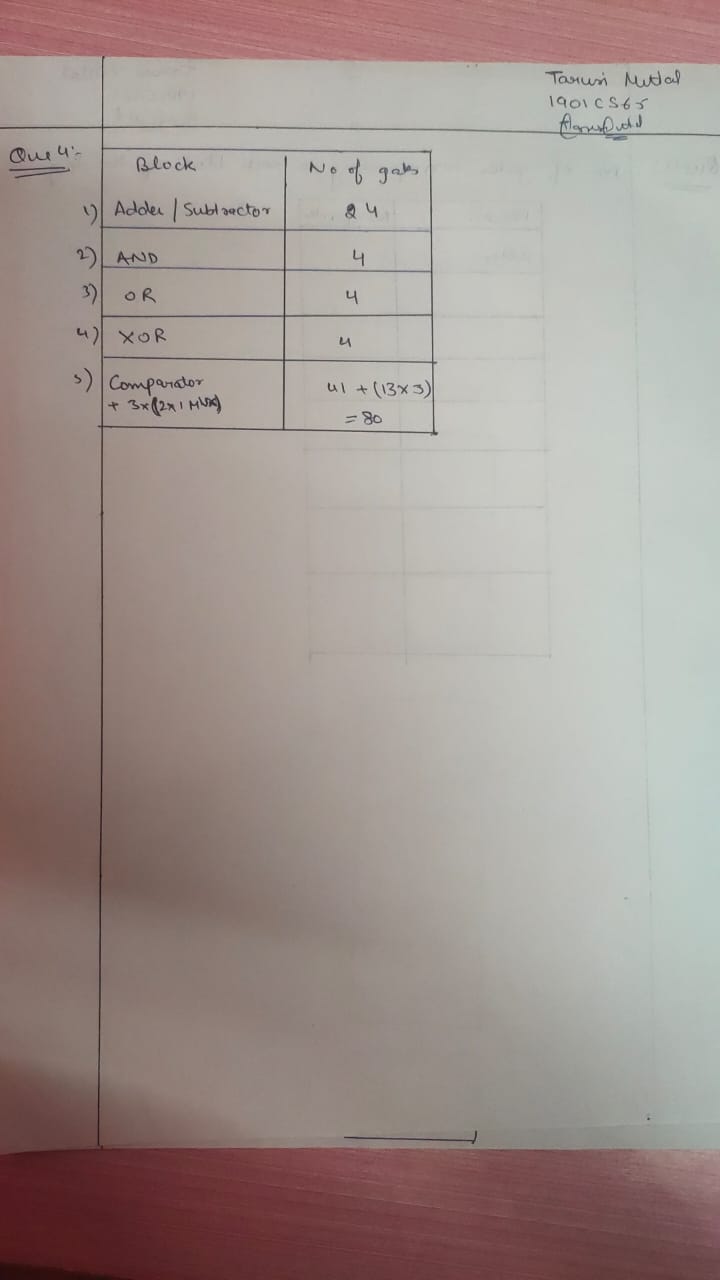 Tarusi Mittal
1901CS65
Que 4:-
Block No of gates
1) Adder / Subtractor 24
2) AND 4
3) OR 4
4) XOR 4
5) Comparator 41 + (13x3)
+ 3x(2x1 MUX) = 80